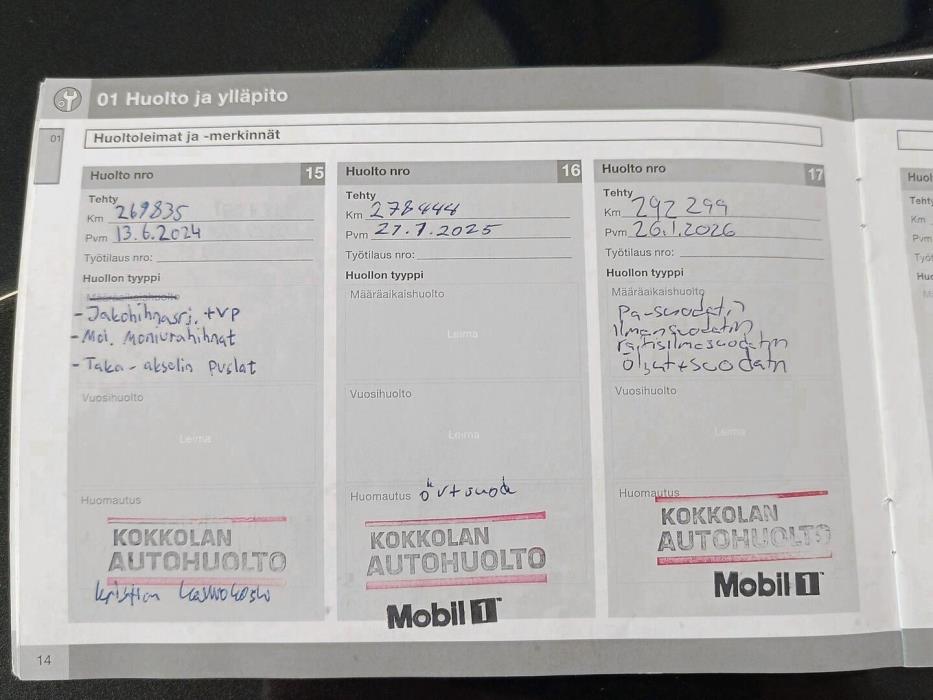 01 Huolto ja ylläpito
01
Huoltoleimat ja -merkinnät
Huolto nro 15
Tehty
Km 269835
Pvm 13.6.2024
Työtilaus nro:
Huollon tyyppi
Määräaikaishuolto
- Jakohihnasrj. +VP
- Moi. Moniurahihnat
- Taka-akselin puslat
Vuosihuolto
Leima
Huomautus
KOKKOLAN
AUTOHUOLTO
Huolto nro 16
Tehty
Km 278444
Pvm 21.7.2025
Työtilaus nro:
Huollon tyyppi
Määräaikaishuolto
Leima
Vuosihuolto
Leima
Huomautus
KOKKOLAN
AUTOHUOLTO
Mobil 1
Huolto nro 17
Tehty
Km 292 299
Pvm 26.1.2026
Työtilaus nro:
Huollon tyyppi
Määräaikaishuolto
Pa-suodatin
Ilmansuodatin
raitisilmasuodatin
Öljyt+suodatin
Vuosihuolto
Leima
Huomautus
KOKKOLAN
AUTOHUOLTO
Mobil 1
14